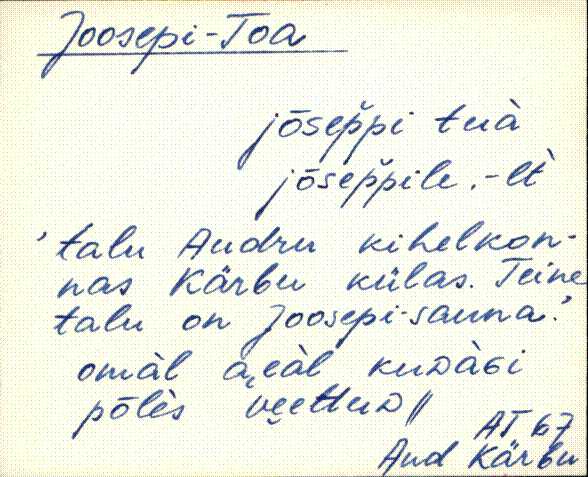 Joosepi-Toa
jōsep̆pi tuà
jōsep̆pile, -lt̀
'talu Audru kihelkon-
nas Kärbu külas. Teine
talu on Joosepi-sauna.'
omàl
pōlès
AT 67
Aud Kärbu